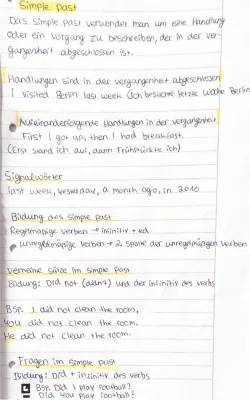 Simple past
Das simple past verwendet man um eine Handlung
oder ein Vorgang zu beschreiben, der in der ver-
gangenheit abgeschlossen ist.
Handlungen sind in der vergangenheit abgeschlossen
I visited Berlin last week (Ich besuchte letzte Woche Berlin
Aufeinanderfolgende Handlungen in der vergangenheit
First I got up, then I had breakfast.
(Erst stand ich auf, dann Frühstückte ich)
Signalwörter
last week, yesterday, a month ago, in 2010
Bildung des simple past
Regelmäßige verben → infinitiv + ed
unregelmäßige verben → 2. spalte der unregelmäßigen verben
verneinte sätze im simple past
Bildung: Did not (didn't) und der infinitiv des verbs
Bsp. I did not clean the room.
You did not clean the room.
He did not clean the room.
Fragen im simple past
Bildung: Did + infinitiv des verbs
Bsp. Did I play football?
Did you play football?